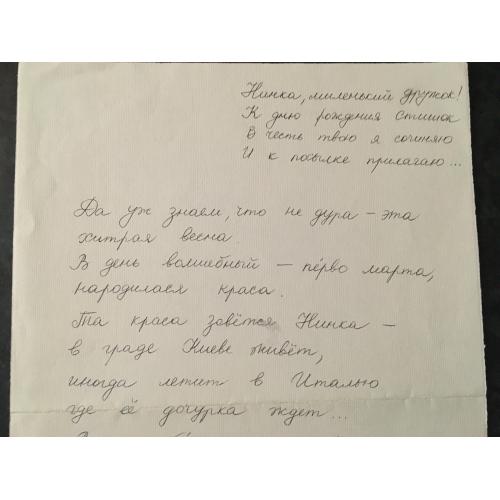 Нинка, миленький дружок!
К дню рождения стишок
В честь твою я сочиняю
И к посылке прилагаю...
Да уж знаем, что не дура – эта
хитрая весна.
В день волшебный – пе́рво марта,
народилася краса.
Та краса зовётся Нинка –
в граде Киеве живёт,
иногда летит в Италью
где её дочурка ждет...